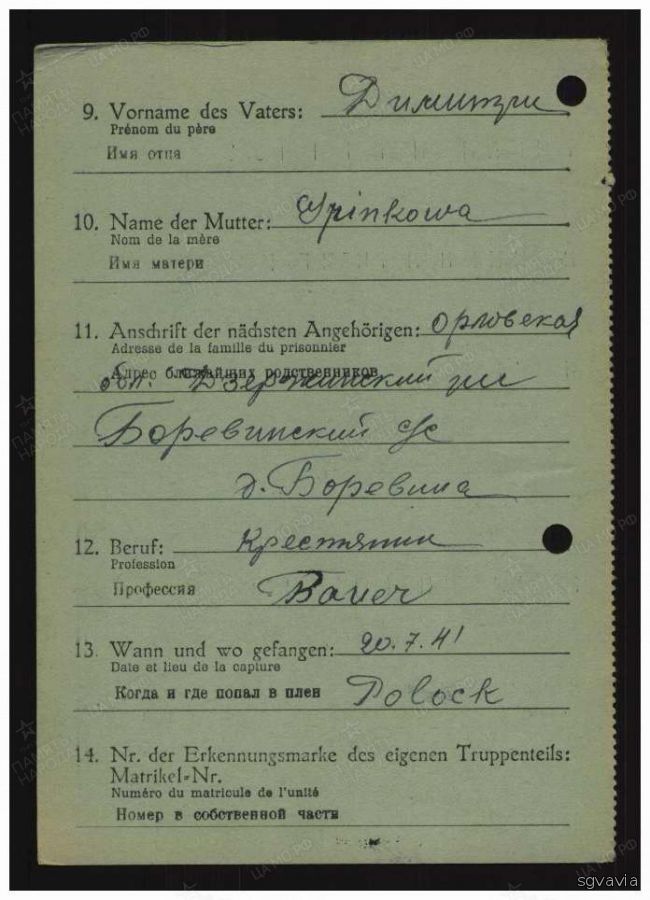 9. Vorname des Vaters: Димитри
Prénom du père
Имя отца
10. Name der Mutter: Grinkowa
Nom de la mère
Имя матери
11. Anschrift der nächsten Angehörigen: Орловская
Adresse de la famille du prisonnier
Адрес ближайших родственников
обл. Дзержинский
Боревинский с/с
д. Боревина
12. Beruf: Крестянин
Profession
Профессия Bauer
13. Wann und wo gefangen: 20.7.41
Date et lieu de la capture
Когда и где попал в плен Polock
14. Nr. der Erkennungsmarke des eigenen Truppenteils:
Matrikel-Nr.
Numéro du matricule de l'unité
Номер в собственной части
sgvavia